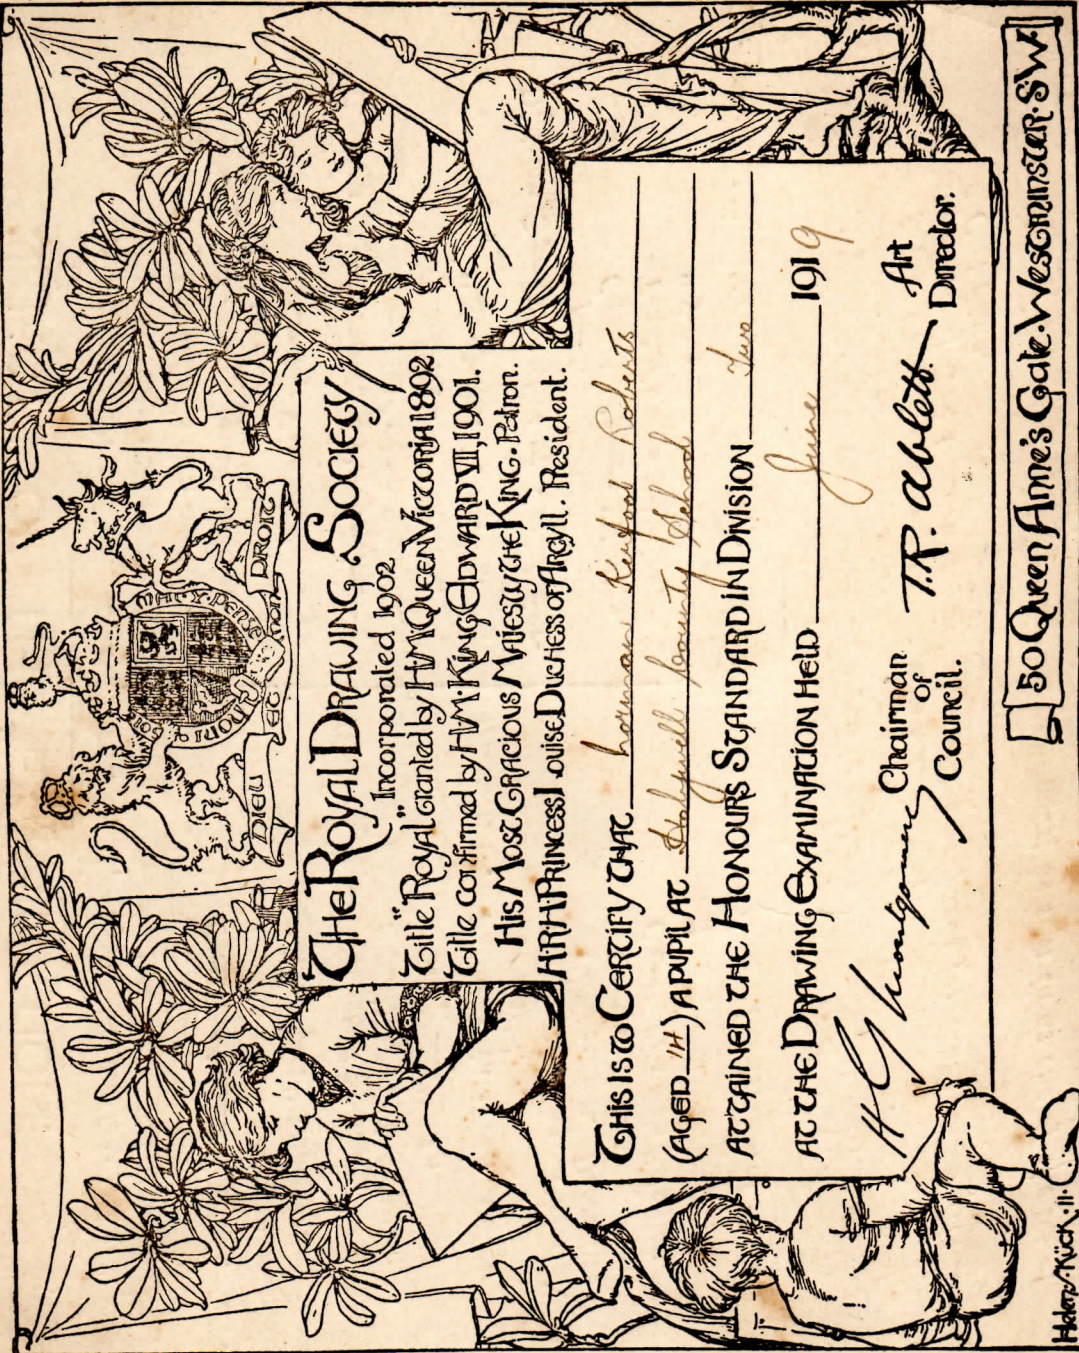 HONI SOIT QUI MAL Y PENSE
DIEU ET MON DROIT
THE ROYAL DRAWING SOCIETY
Incorporated 1902
Title "Royal" granted by H.M. QUEEN VICTORIA 1892
Title confirmed by H.M. KING EDWARD VII, 1901.
HIS MOST GRACIOUS MAJESTY THE KING. Patron.
H.R.H. PRINCESS LOUISE DUCHESS OF ARGYLL. President.
THIS IS TO CERTIFY THAT Norman Kenfood Roberts
(AGED 14) A PUPIL AT Holywell County School
ATTAINED THE HONOURS STANDARD IN DIVISION Two
AT THE DRAWING EXAMINATION HELD June 1919
H G Montgomery Chairman of Council.
T.R. Ablett Art Director.
50 QUEEN ANNE'S GATE. WESTMINSTER. S.W.
Helen. Kück. 11.